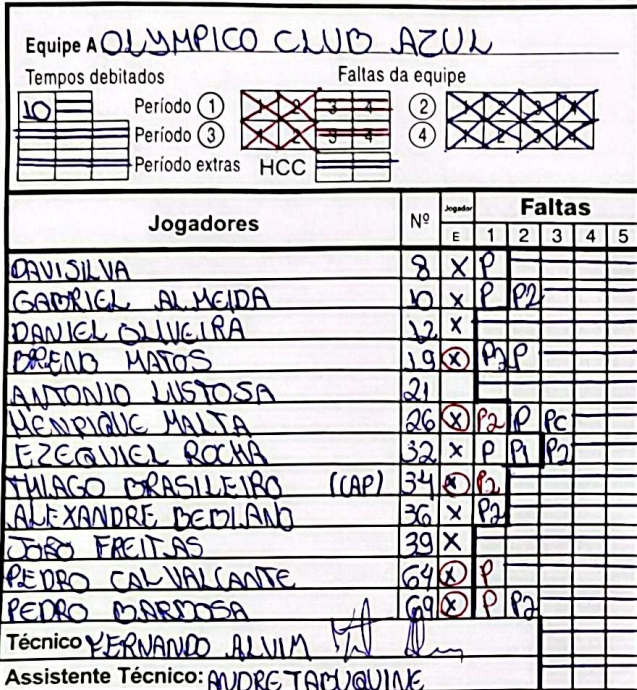 Equipe A OLYMPICO CLUB AZUL
Tempos debitados Faltas da equipe
10 Período 1 1 2 3 4 2 1 2 3 4
Período 3 1 2 3 4 4 1 2 3 4
Período extras HCC
Jogadores Nº Jogador Faltas
E 1 2 3 4 5
DAVI SILVA 8 X P
GABRIEL ALMEIDA 10 X P P2
DANIEL OLIVEIRA 12 X
BRENO MATOS 19 X P2 P
ANTONIO LUSTOSA 21
HENRIQUE MALTA 26 X P2 P PC
EZEQUIEL ROCHA 32 X P P1 P2
THIAGO BRASILEIRO (CAP) 34 X P2
ALEXANDRE BEDIANO 36 X P2
JOÃO FREITAS 39 X
PEDRO CALVALCANTE 64 X P
PEDRO BARBOSA 69 X P P2
Técnico FERNANDO ALVIM
Assistente Técnico: ANDRE TABUQUINE